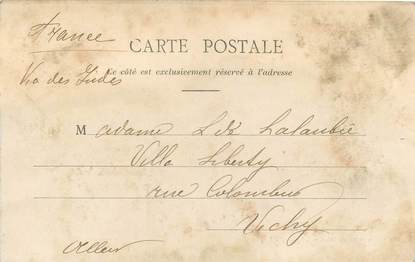 France
CARTE POSTALE
Via des Indes
Ce côté est exclusivement réservé à l'adresse
Madame Lalaubie
Villa Liberty
rue
Vichy